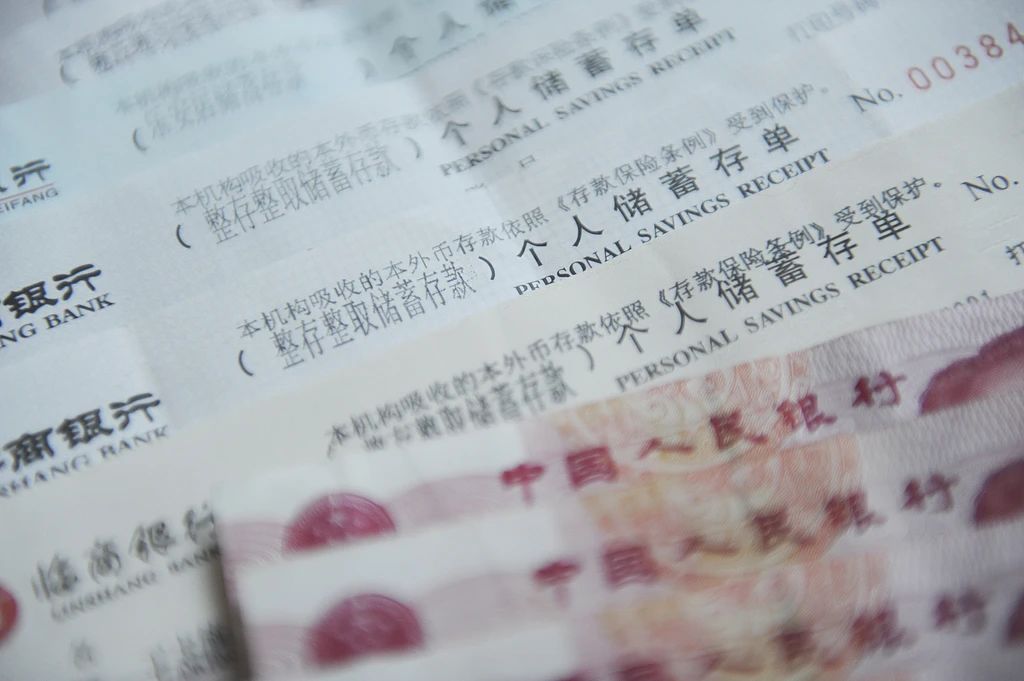 个人储
本机构吸收的本外币存款依照《存款保险条例》受到保护。
(整存整取储蓄存款) 个人储蓄存单
PERSONAL SAVINGS RECEIPT
No. 00384
行
EIFANG
本机构吸收的本外币存款依照《存款保险条例》受到保护。
(整存整取储蓄存款) 个人储蓄存单
PERSONAL SAVINGS RECEIPT
No.
银行
NG BANK
本机构吸收的本外币存款依照《存款保险条例》受到保护。
整取储蓄存款) 个人储蓄存单
PERSONAL SAVINGS RECEIPT
打
商银行
SHANG BANK
临商银行
LINSHANG BANK
中国人民银行
中国人民银行
人民银行